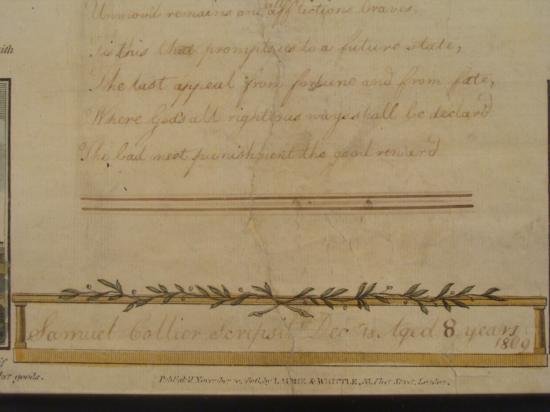 Unmov'd remains and all afflictions braves.
with
Tis this that prompts us to a future state,
The last appeal from fortune and from fate,
Where God's all righteous ways shall be declar'd
The bad meet punishment the good reward
Samuel Collier Scripsit Decr 18. Aged 8 years
1809
Publish'd November by LAURIE & WHITTLE, 53, Fleet Street, London.
goods.